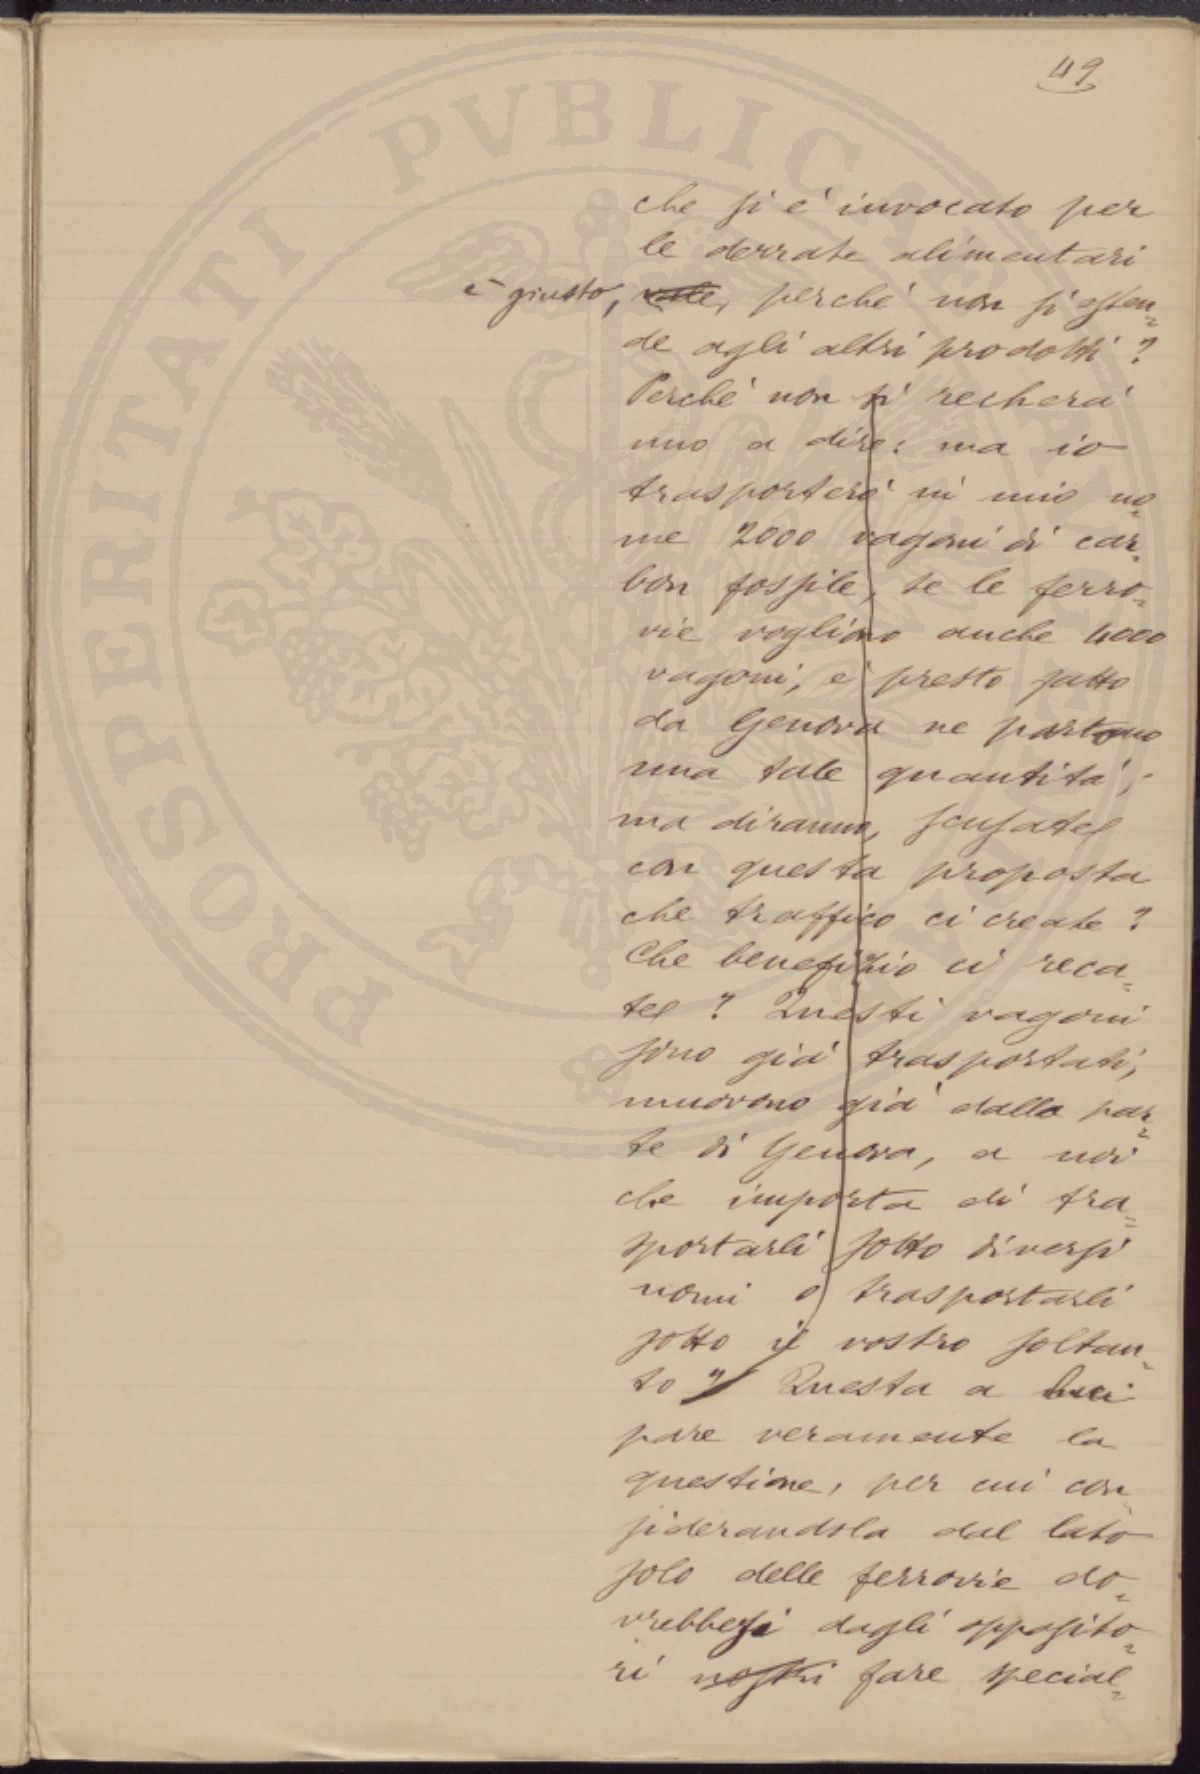 49
che si è invocato per
le derrate alimentari
è giusto, vale, perchè non si esten=
de agli altri prodotti?
Perchè non si recherà
uno a dire: ma io
trasporterò in mio no=
me 2000 vagoni di car=
bon fossile, se le ferro=
vie vogliono anche 4000
vagoni, è presto fatto
da Genova ne partono
una tale quantità;
ma diranno, scusate
con questa proposta
che traffico ci create?
Che benefizio ci reca=
te? Questi vagoni
sono già trasportati,
muovono già dalla par=
te di Genova, a noi
che importa di tra=
sportarli sotto diversi
nomi o trasportarli
sotto il vostro soltan=
to? Questa a
pare veramente la
questione, per cui con=
siderandola dal lato
solo delle ferrovie do=
vrebbesi dagli opposito=
ri nostri fare special=
PROSPERITATI PVBLICAE